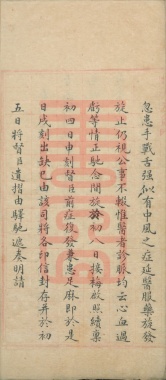 急患手戰舌强似有中風之症延醫服藥旋發
旋止仍視公事不輟惟醫者診脈均云心血過
虧等情正馳念間旋於初八日接梅啟照續稟
初四日申刻督臣前症復發兼患足麻即於是
日戌刻出缺已由該司將各印信封存並於初
五日將督臣遺摺由驛馳遞奏明請